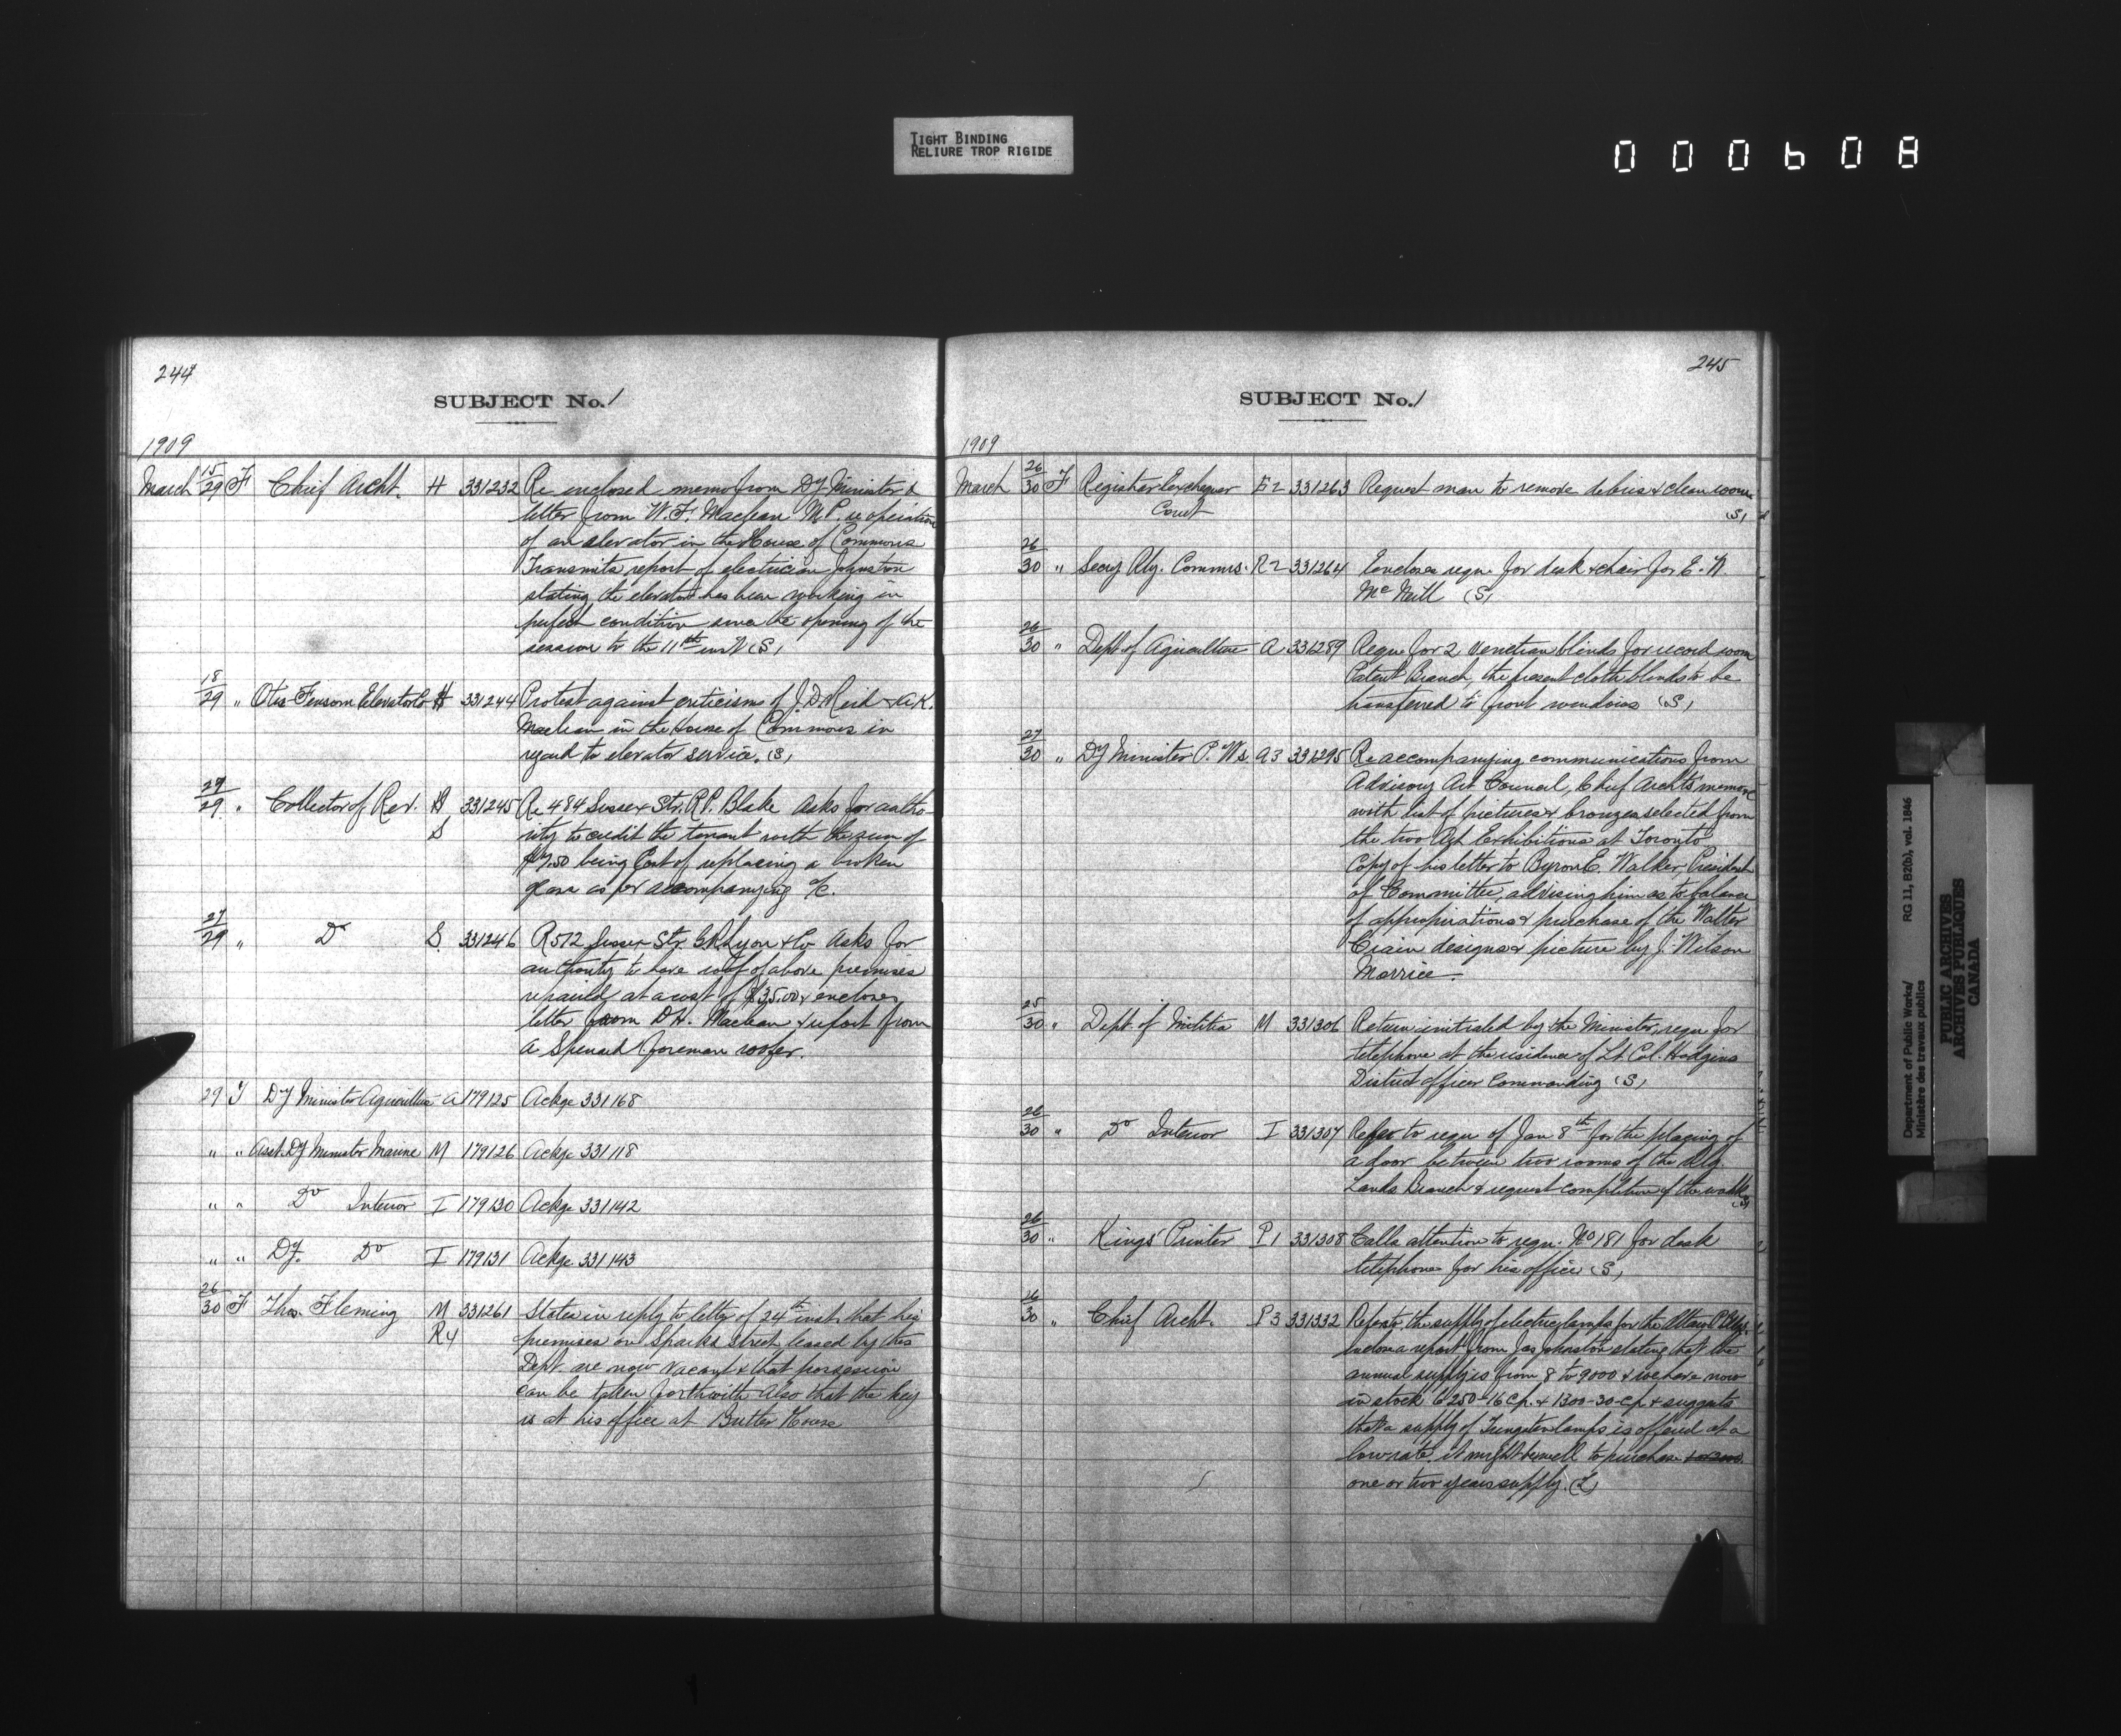 TIGHT BINDING
RELIURE TROP RIGIDE
000608
244
SUBJECT No. 1
1909
March 15/29 F Chief Archt. H 331232 Re enclosed memo from Dy Minister &
letter from W. F. Maclean M.P. re operation
of an elevator in the House of Commons
Transmits report of electrician Johnston
stating the elevator has been working in
perfect condition since the opening of the
session to the 11th inst (S)
18/29 " Otis Fensom Elevator Co H 331244 Protest against criticisms of J. D. Reid & A. K.
Maclean in the House of Commons in
regard to elevator service. (S)
29/29 " Collector of Rev. S 331245 Re 484 Sussex Str. R. P. Blake asks for autho-
rity to credit the tenant with the sum of
$7.50 being Cost of replacing a broken
glass as per accompanying a/c.
27/29 " Do S 331246 R 572 Sussex Str. Lyon & Co asks for
authority to have roof of above premises
repaired at a cost of $35.00 & encloses
letter from D. H. Maclean & report from
A Spenard foreman roofer.
29 Y Dy Minister Agriculture A 179125 Ackge 331168
" " Asst. Dy Minister Marine M 179126 Ackge 331118
" " Do Interior I 179130 Ackge 331142
" " Dy. Do I 179131 Ackge 331143
26/30 F Thos. Fleming M 331261 States in reply to letter of 24th inst. that his
R4 premises on Sparks Street leased by this
Dept. are now vacant & that possession
can be taken forthwith also that the key
is at his office at Butler House
245
SUBJECT No. 1
1909
March 26/30 F Registrar Exchequer E2 331263 Request man to remove debris & clean room
Court (S)
26/30 " Secy Rly. Commrs. R2 331264 Encloses requ. for desk & chair for E. A.
McNeill (S)
26/30 " Dept. of Agriculture A 331289 Requ. for 2 venetian blinds for record room
Patent Branch, the present cloth blinds to be
transferred to front windows (S)
27/30 " Dy Minister P. Ws. A3 331295 Re accompanying communications from
Advisory Art Council, Chief Archts memo
with list of pictures & bronzes selected from
the two Art Exhibitions at Toronto
Copy of his letter to Byron E. Walker, President
of Committee, advising him as to balance
of appropriations & purchase of the Walter
Crain designs & picture by J. Wilson
Morrice.
25/30 " Dept. of Militia M 331306 Return initialed by the Minister, requ for
telephone at the residence of Lt. Col. Hodgins
District officer Commanding (S)
26/30 " Do Interior I 331307 Refers to requ of Jan 8th for the placing of
a door between two rooms of the
Lands Branch & request completion of the work (S)
26/30 " Kings' Printer P1 331308 Calls attention to requ. No 181 for desk
telephone for his office (S)
16/30 " Chief Archt. P3 331332 Refers to the supply of electric lamps for the Ottawa P. Bldgs.
Encloses report from Jas Johnston stating that the
annual supply is from 8 to 9000 & we have now
in stock 6250-16 c.p. & 1300-30 c.p. & suggests
that a supply of Tungsten lamps is offered at a
low rate, it might be well to purchase
one or two years supply. (L)
Department of Public Works/ RG 11, B2(b), vol. 1846
Ministère des travaux publics
PUBLIC ARCHIVES
ARCHIVES PUBLIQUES
CANADA